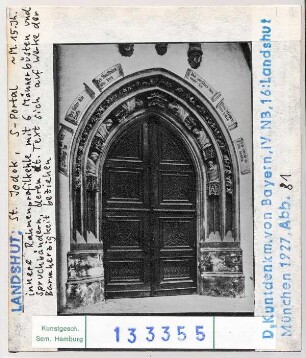 LANDSHUT: St. Jodok S-Portal ~M.15.Jh.
innere Rahmenprofilkehle mit 6 Männerbüsten und
Spruchbändern, deren dt. Text sich auf Werke der
Barmherzigkeit beziehen
D. Kunstdenkm. von Bayern, IV. NB, 16: Landshut
München 1927, Abb. 81
Kunstgesch.
Sem. Hamburg
133355